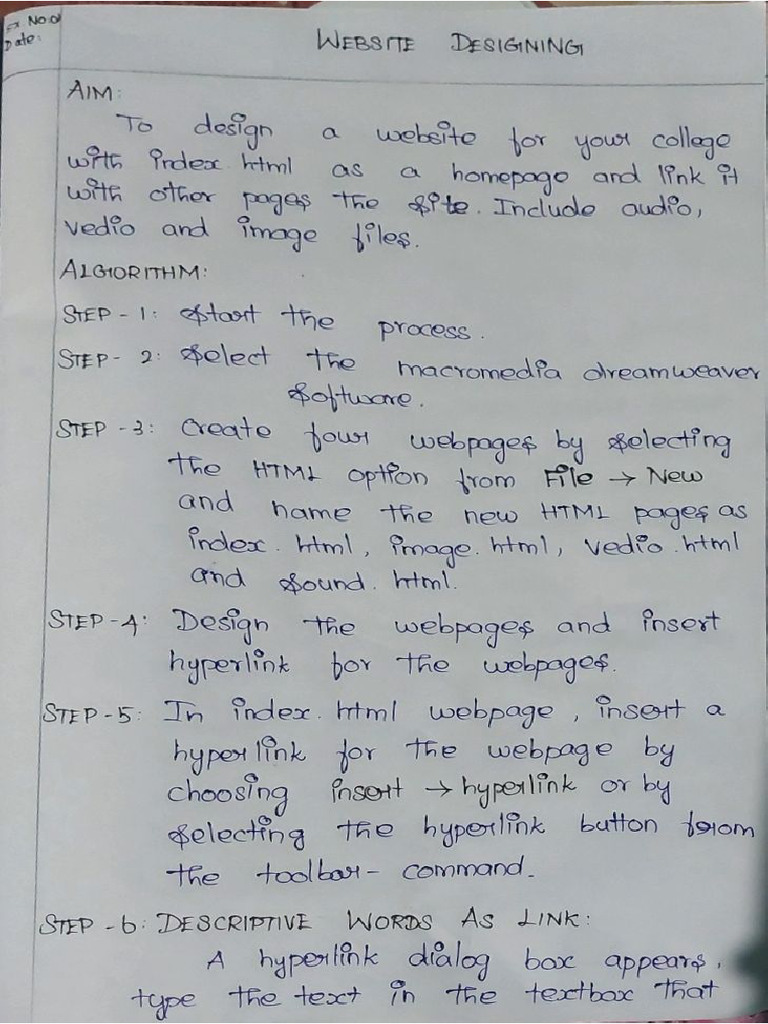 Ex. No: 01
Date:
WEBSITE DESIGNING
AIM:
To design a website for your college
with index.html as a homepage and link it
with other pages the site. Include audio,
vedio and image files.
ALGIORITHM:
STEP - 1: Start the process.
STEP - 2: Select the macromedia dreamweaver
Software.
STEP - 3: Create four webpages by selecting
the HTML option from File → New
and name the new HTML pages as
index.html, image.html, vedio.html
and sound.html.
STEP - 4: Design the webpages and insert
hyperlink for the webpages.
STEP - 5: In index.html webpage, insert a
hyperlink for the webpage by
choosing insert → hyperlink or by
selecting the hyperlink button from
the toolbar - command.
STEP - 6: DESCRIPTIVE WORDS AS LINK:
A hyperlink dialog box appears,
type the text in the textbox that